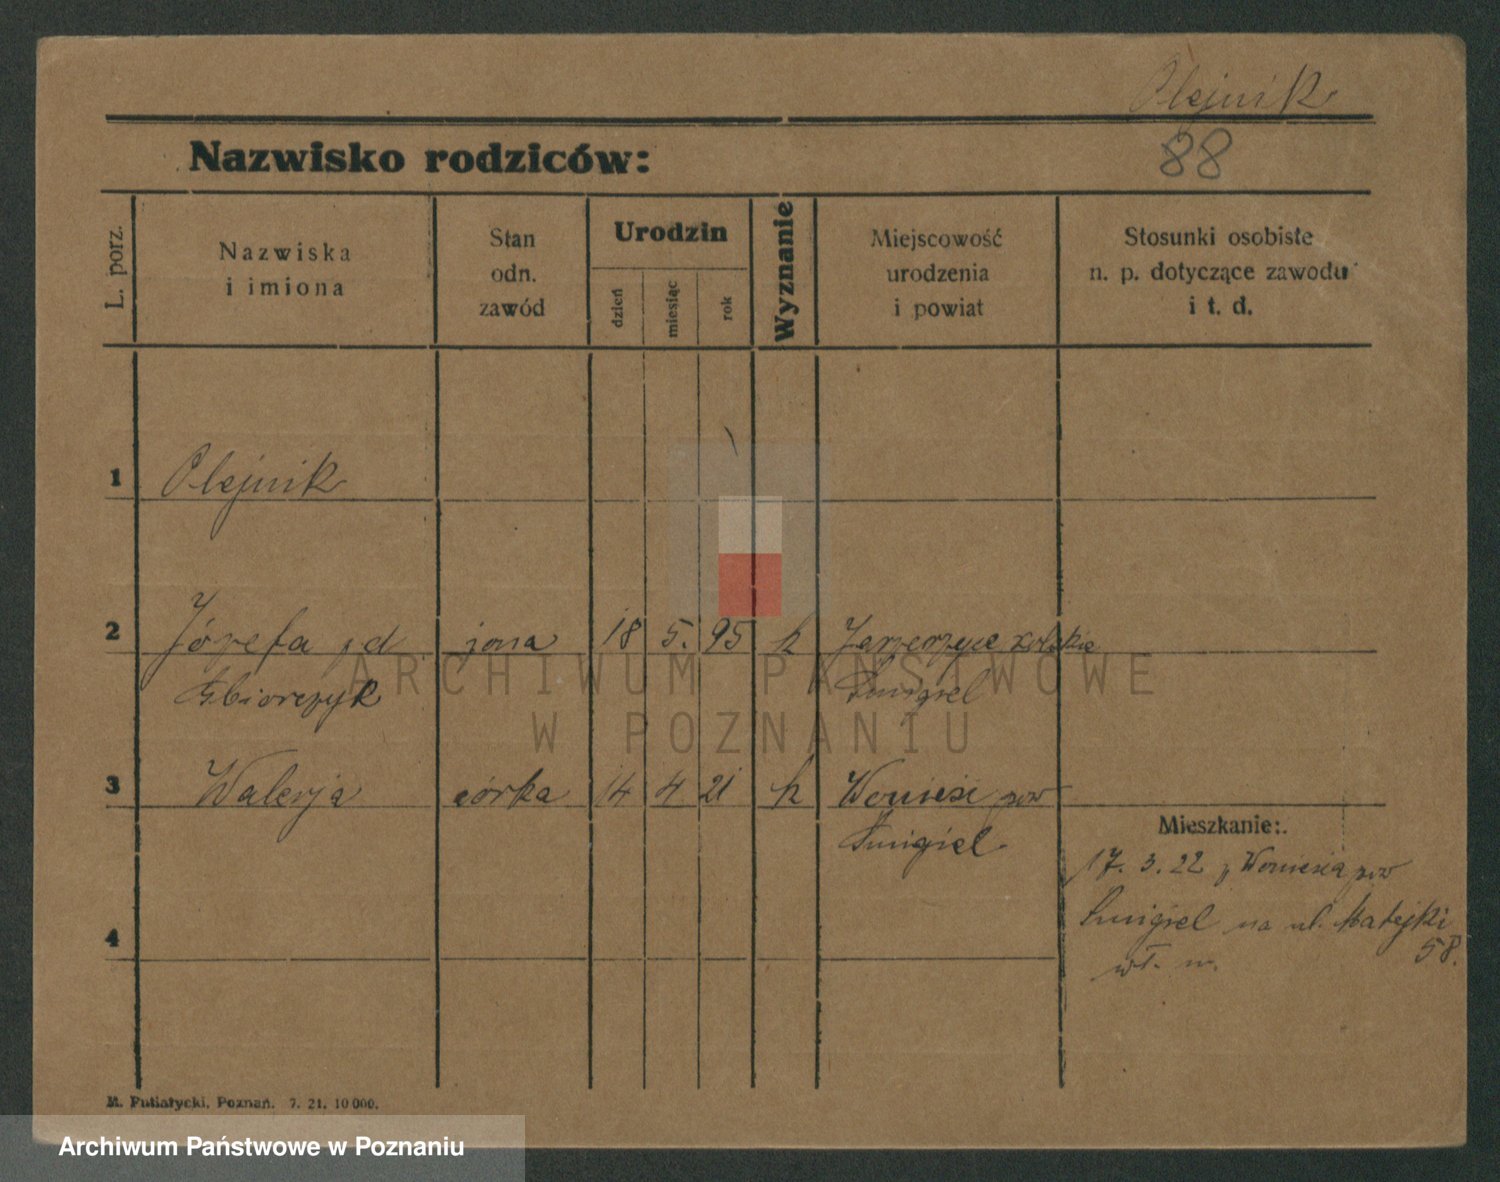 Olejnik
Nazwisko rodziców:
88
L. porz.
Nazwiska
i imiona
Stan
odn.
zawód
Urodzin
dzień
miesiąc
rok
Wyznanie
Miejscowość
urodzenia
i powiat
Stosunki osobiste
n. p. dotyczące zawodu
i t. d.
1 Olejnik
2 Józefa żona 18 5. 95 k
Śmigiel
3 Walerja córka 14 4 21 k Woniesć pow
Śmigiel
Mieszkanie:
17. 3. 22 z Woniescia pow
Śmigiel na ul. Matejki
58.
wł. m.
4
M. Putiatycki, Poznań. 7. 21. 10 000.
ARCHIWUM PAŃSTWOWE
W POZNANIU
Archiwum Państwowe w Poznaniu